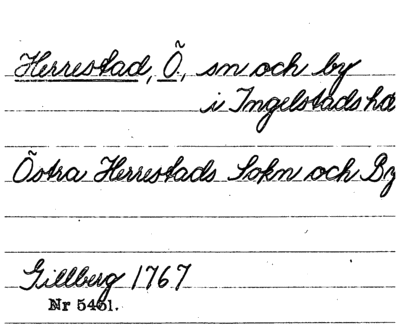 Herrestad, Õ., sn och by
i Ingelstads hd
Õstra Herrestads Sokn och By
Gillberg 1767
Nr 5461.